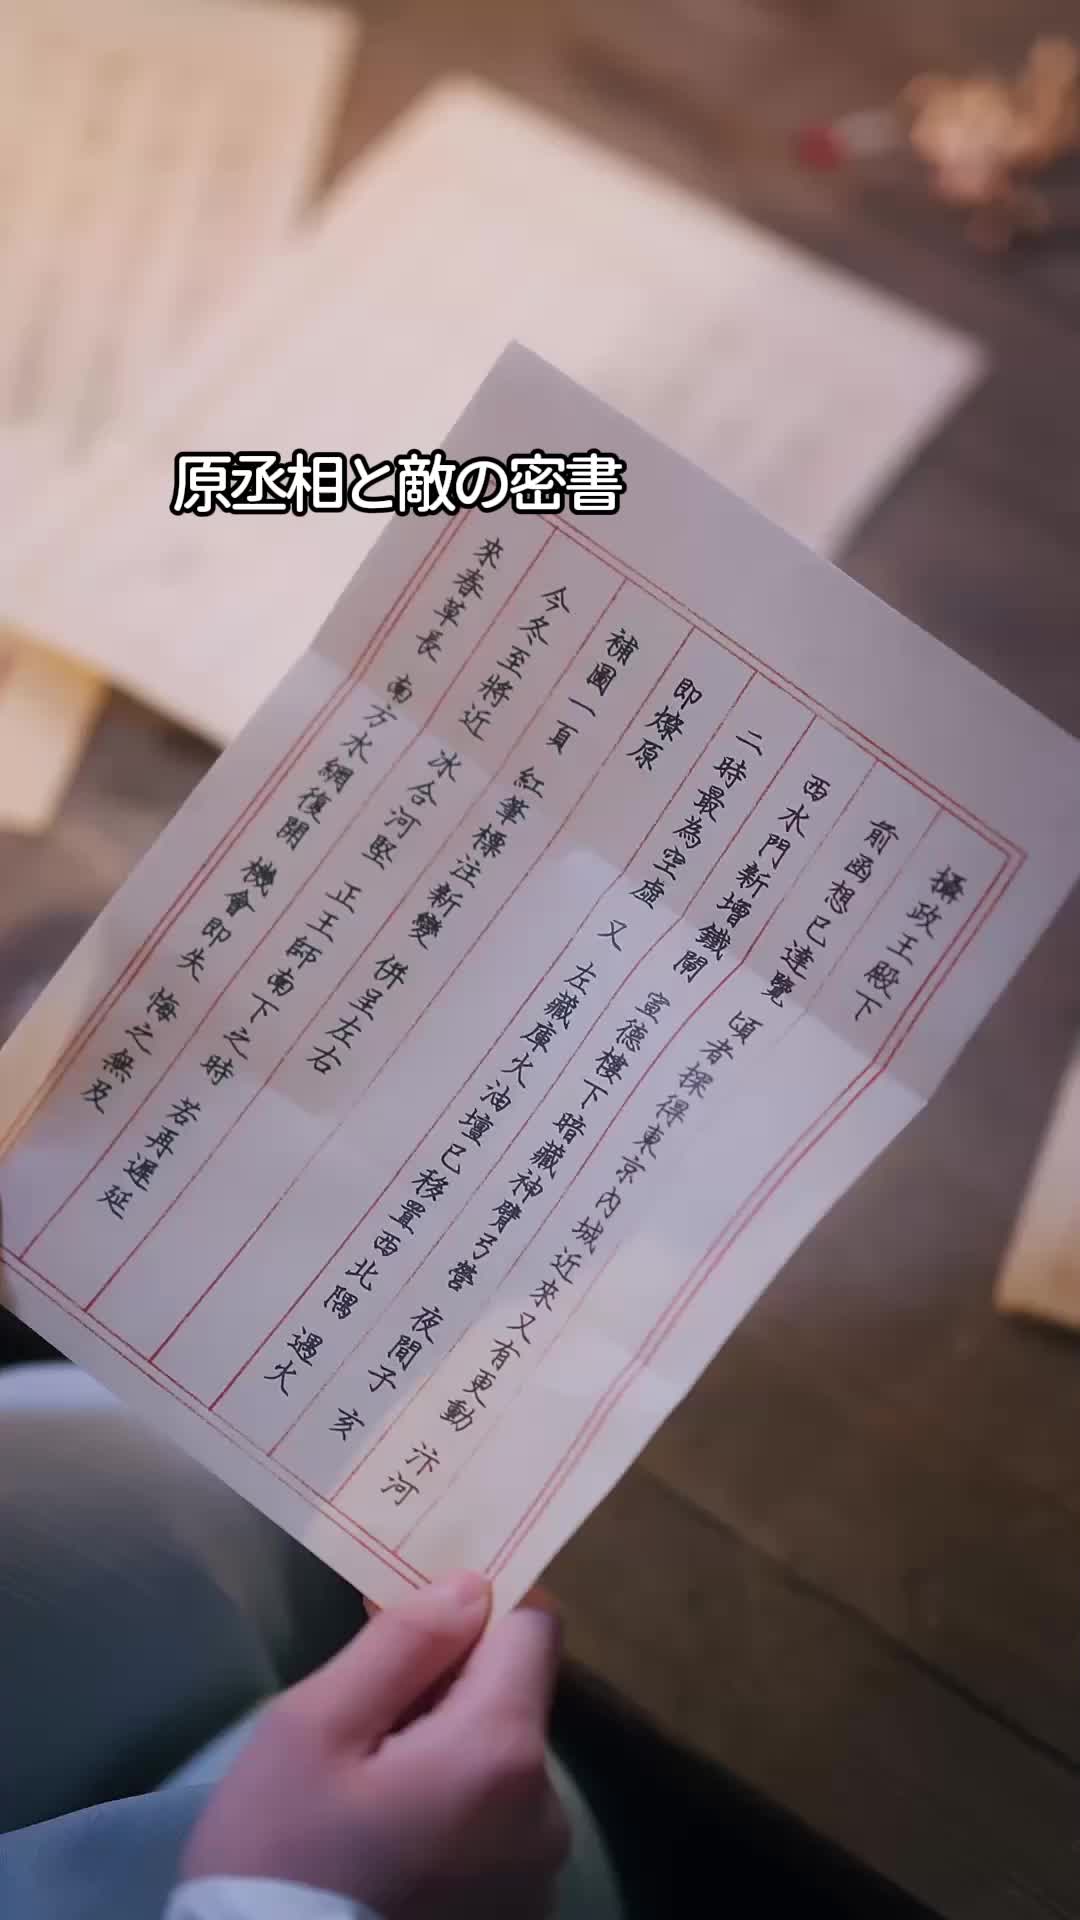 原丞相と敵の密書
攝政王殿下
前函想已達覽 頃者探得東京內城近來又有更動 汴河
西水門新增鐵閘 宣德樓下暗藏神臂弓營 夜間子 亥
二時最為空虛 又 左藏庫火油壇已移置西北隅 遇火
即燎原
補圖一頁 紅筆標注新變 併呈左右
今冬至將近 冰合河堅 正王師南下之時 若再遲延
來春草長 南方水網復開 機會即失 悔之無及